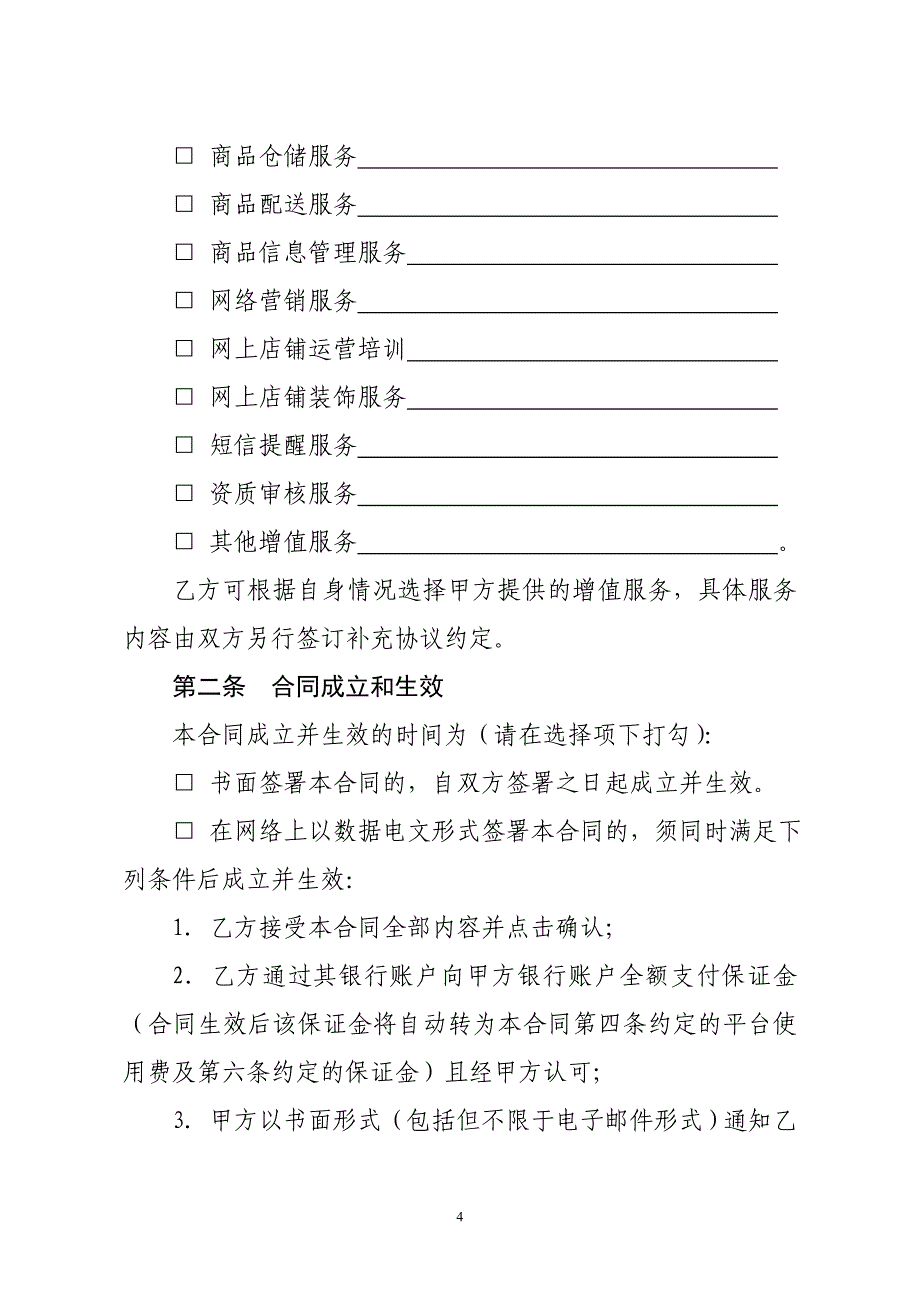 □ 商品仓储服务__________________________________
□ 商品配送服务__________________________________
□ 商品信息管理服务______________________________
□ 网络营销服务__________________________________
□ 网上店铺运营培训______________________________
□ 网上店铺装饰服务______________________________
□ 短信提醒服务__________________________________
□ 资质审核服务__________________________________
□ 其他增值服务__________________________________。
乙方可根据自身情况选择甲方提供的增值服务，具体服务
内容由双方另行签订补充协议约定。
第二条　合同成立和生效
本合同成立并生效的时间为（请在选择项下打勾）：
□ 书面签署本合同的，自双方签署之日起成立并生效。
□ 在网络上以数据电文形式签署本合同的，须同时满足下
列条件后成立并生效：
1. 乙方接受本合同全部内容并点击确认；
2. 乙方通过其银行账户向甲方银行账户全额支付保证金
（合同生效后该保证金将自动转为本合同第四条约定的平台使
用费及第六条约定的保证金）且经甲方认可；
3. 甲方以书面形式（包括但不限于电子邮件形式）通知乙
4